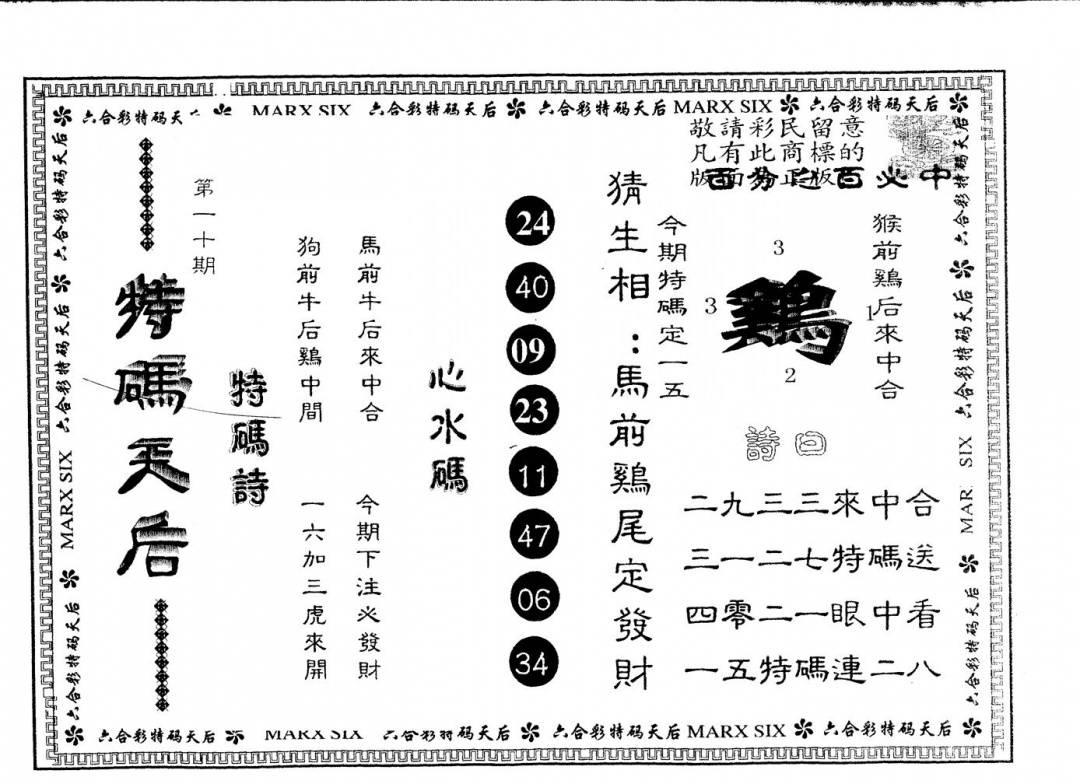 六合彩特码天
MARX SIX
六合彩特码天后
六合彩特码天后
MARX SIX
六合彩特码天后
敬請彩民留意
凡有此商標的
版
正版
百分之百必中
第一十期
特碼天后
特碼詩
狗前牛后鷄中間
一六加三虎來開
馬前牛后來中合
今期下注必發財
心水碼
24
40
09
23
11
47
06
34
猜生相:馬前鷄尾定發財
今期特碼定一五
3
3
鷄
1
2
猴前鷄后來中合
詩曰
二九三三來中合
三一二七特碼送
四零二一眼中看
一五特碼連二八
六合彩特码天后
六合彩特码天后
MARX SIX
六合彩特码天后
六合彩特码天后
六合彩特码天后
六合彩特码天后
MAR SIX
六合彩特码天后
六合彩特码天后
MARX SIX
六合彩特码天后
六合彩特码天后
MARX SIX
六合彩特码天后